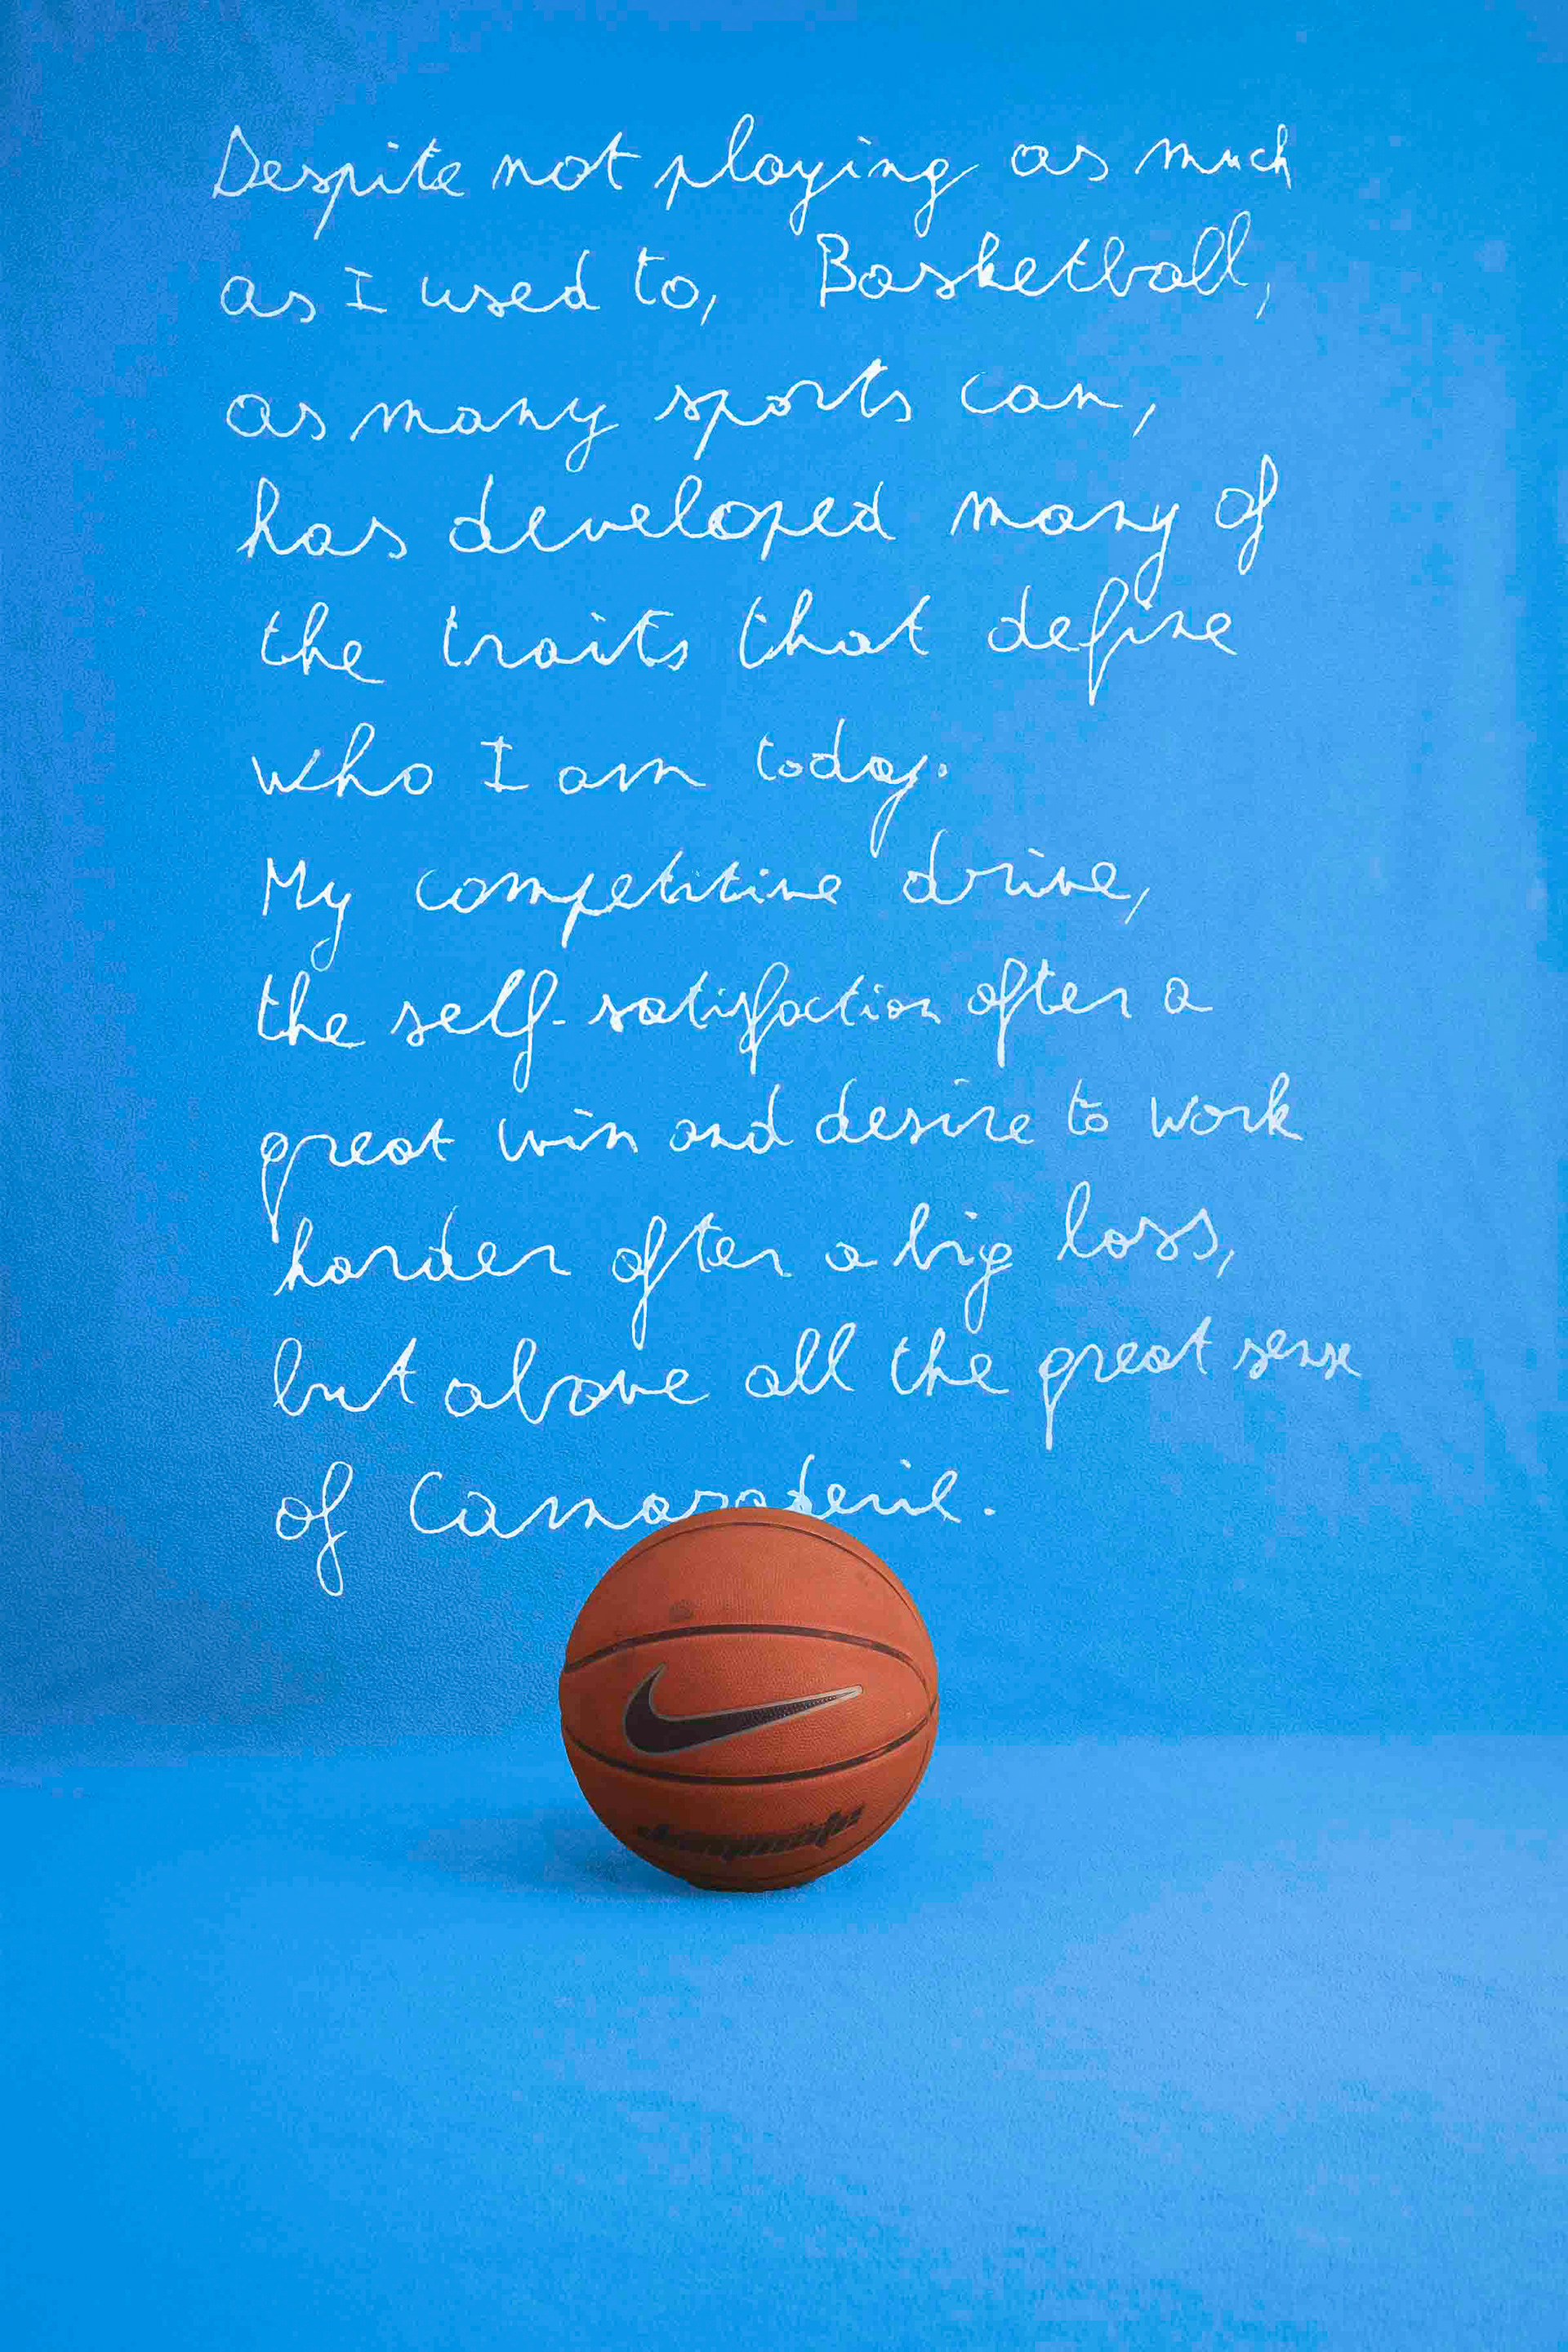 Despite not playing as much
as I used to, Basketball,
as many sports can,
has developed many of
the traits that define
who I am today.
My competitive drive,
the self-satisfaction after a
great win and desire to work
harder after a big loss,
but above all the great sense
of Camaraderie.